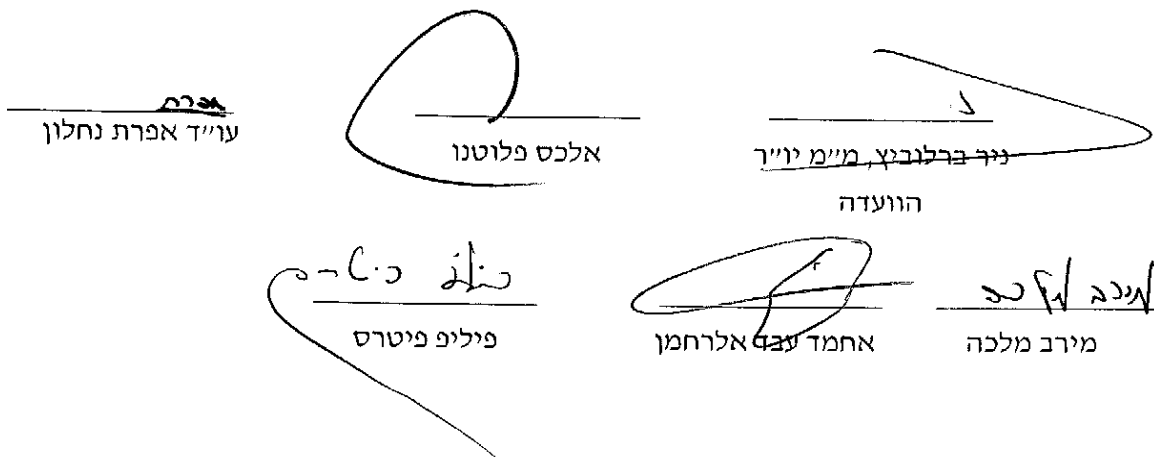 אפרת
ניר ברלוביץ, מ״מ יו״ר
הוועדה
אלכס פלוטנו
עו״ד אפרת נחלון
מירב מלכה
מירב מלכה
אחמד עבד אלרחמן
פיליפ פיטרס